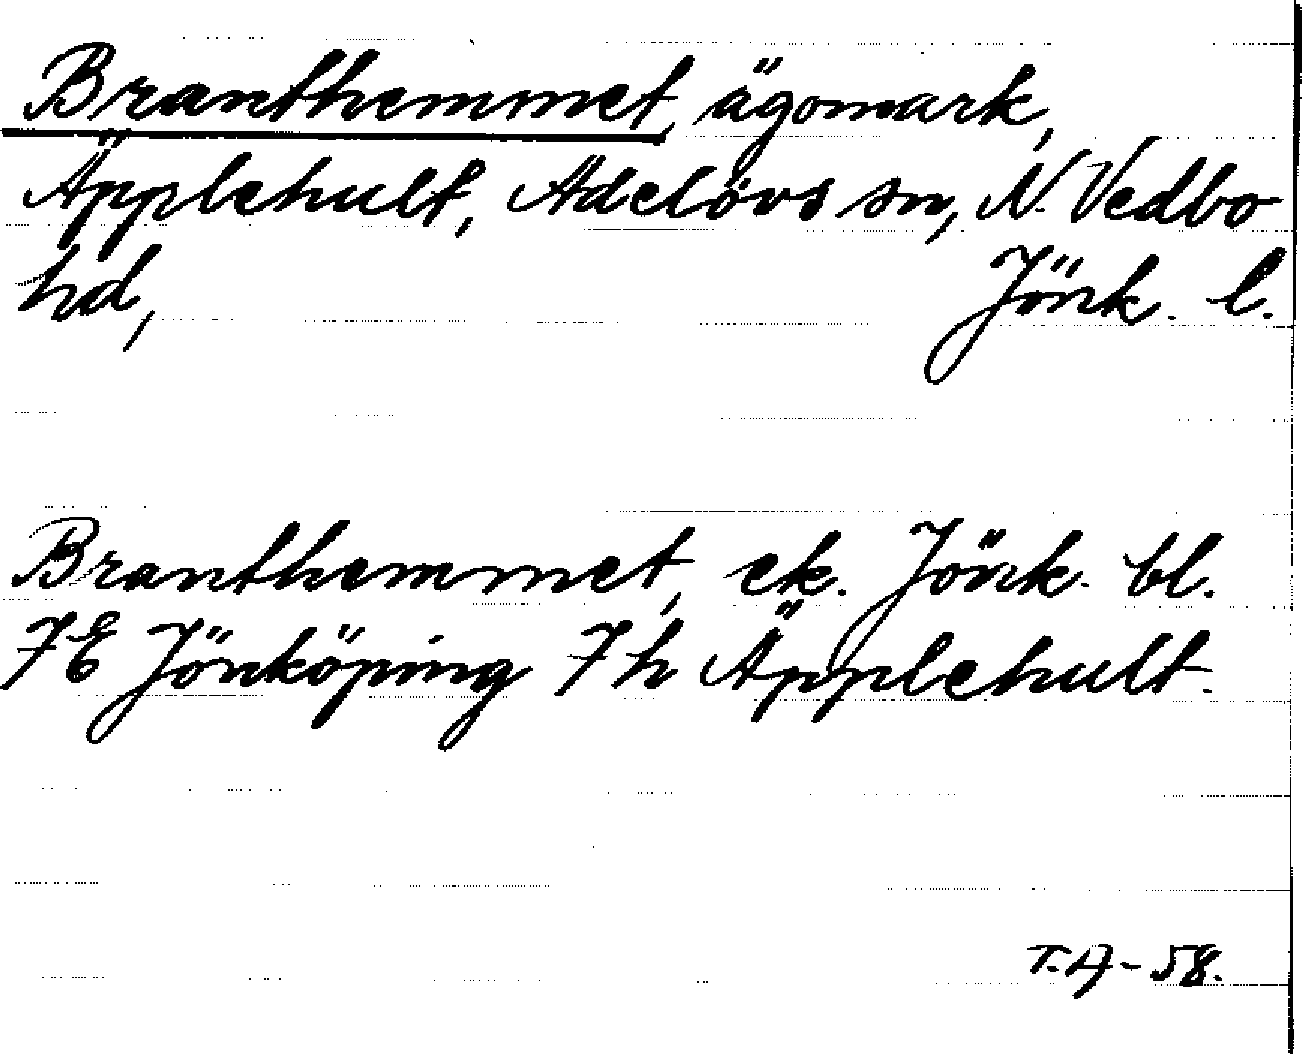 Branthemmet, ägomark,
Äpplehult, Adelövs sn, N. Vedbo
hd, Jönk. l.
Branthemmet, ek. Jönk. bl.
7E Jönköping 7h Äpplehult.
T.A-58.